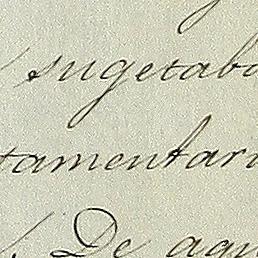 sugetaba
tamentari
De aqu